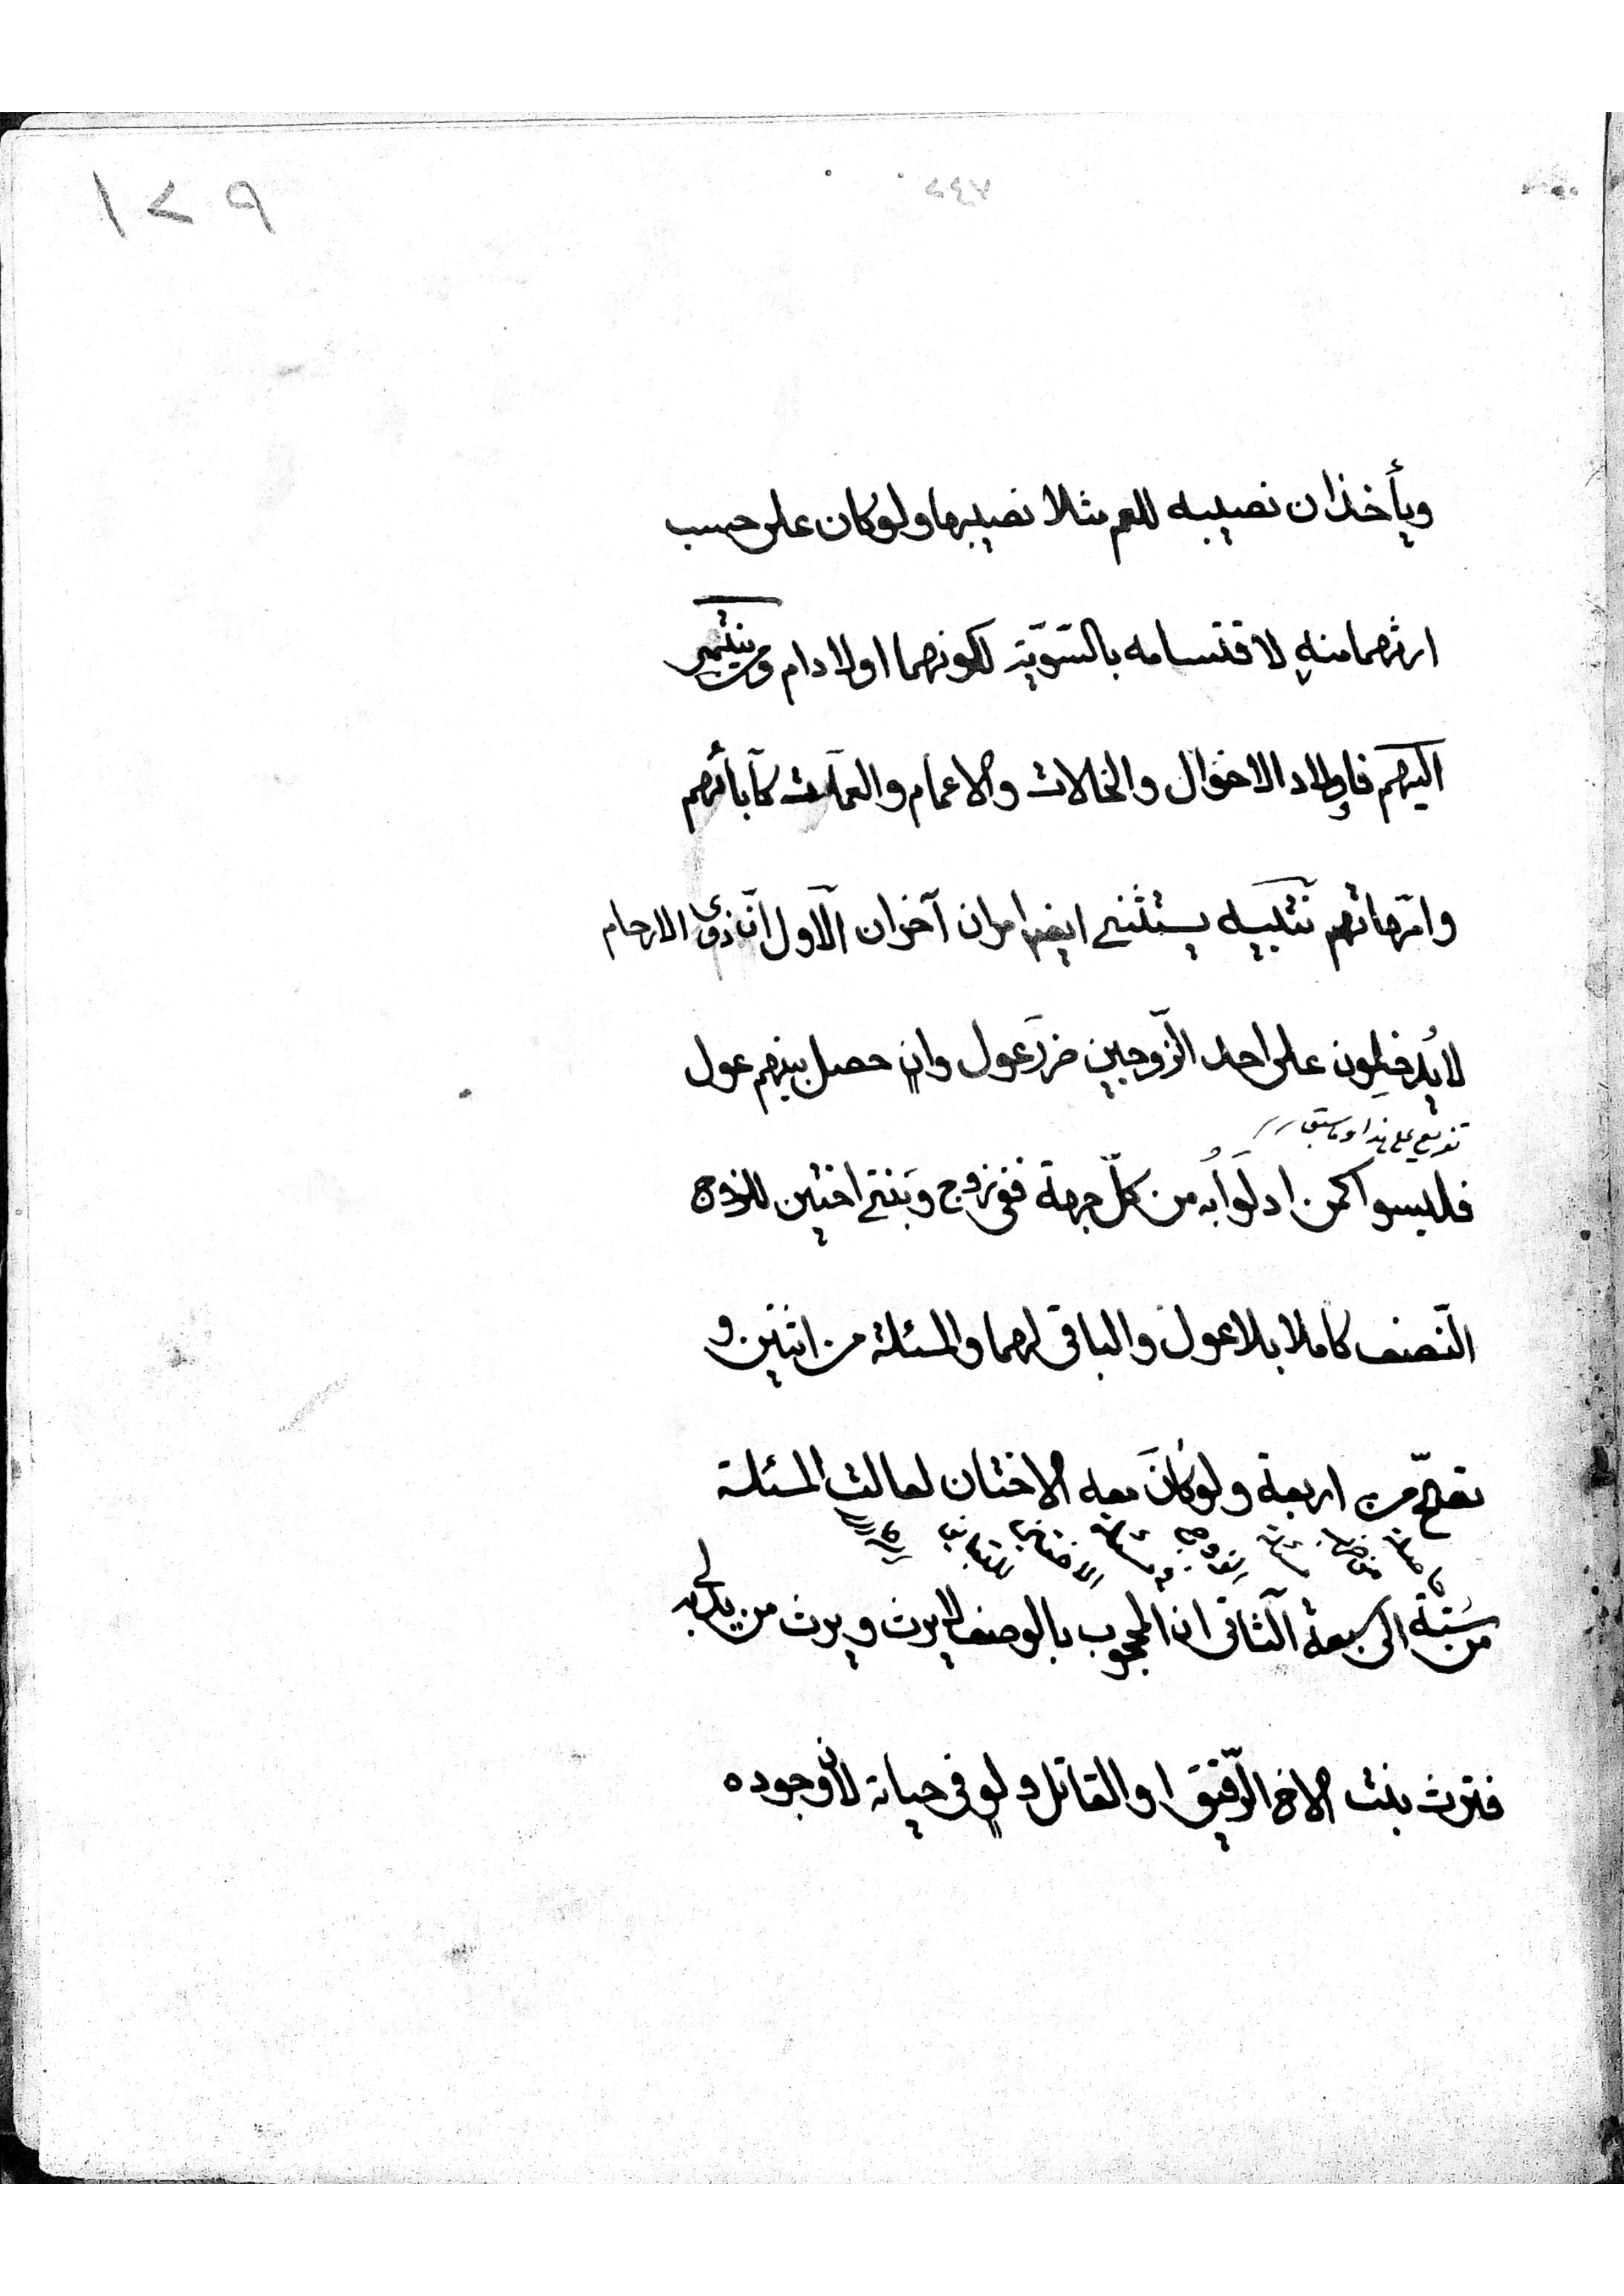 ١٢٩
ويأخذان نصيبه للعم مثلا نصيبها ولو كان على حسب
ارثهما منه لاقتسامه بالسّويّة لكونهما اولاد ام ومن ينتمى
اليهم فاولاد الاخوال والخالات والاعمام والعمات كآبائهم
وامّهاتهم تتبيه يستثنى ايضا امران آخران الاول انّ ذوى الارحام
لا يُدخِلون على احد الزّوجين ضررَ عول وان حصل بينهم عول
تفريع على هذا وما سبق
فليسوا كمن ادلَوا به من كلّ جهة ففى زوج وبنتى اختين للزوج
النّصف كاملا بلا عول والباقى لهما والمسئلة من اثنين و
تصحّ من اربعة ولو كانَ معه الاختان لعالت المسئلة
من ستة الى سبعة الثانى ان المحجوب بالوصف لا يرث ويرث من يدلى به
فترث بنت الاخ الرّقيق او القاتل ولو فى حياته لانّ وجوده